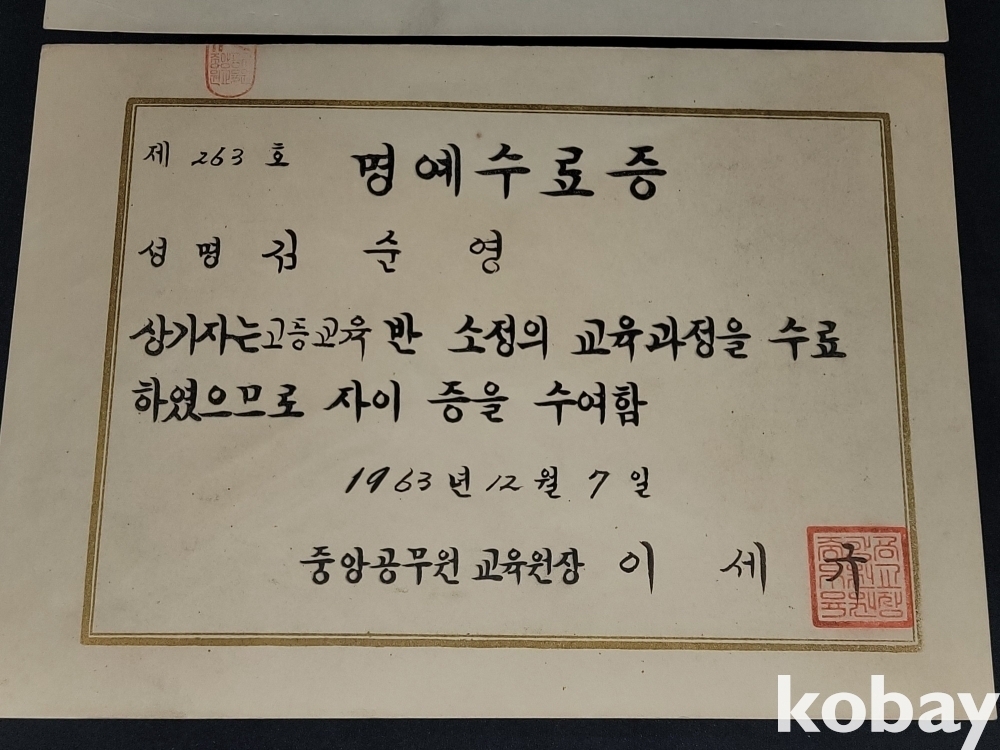 제 263 호 명예수료증
성 명 김 순 영
상기자는 고등교육 반 소정의 교육과정을 수료
하였으므로 자이 증을 수여함
1963년 12월 7일
중앙공무원 교육원장 이 세 규
kobay